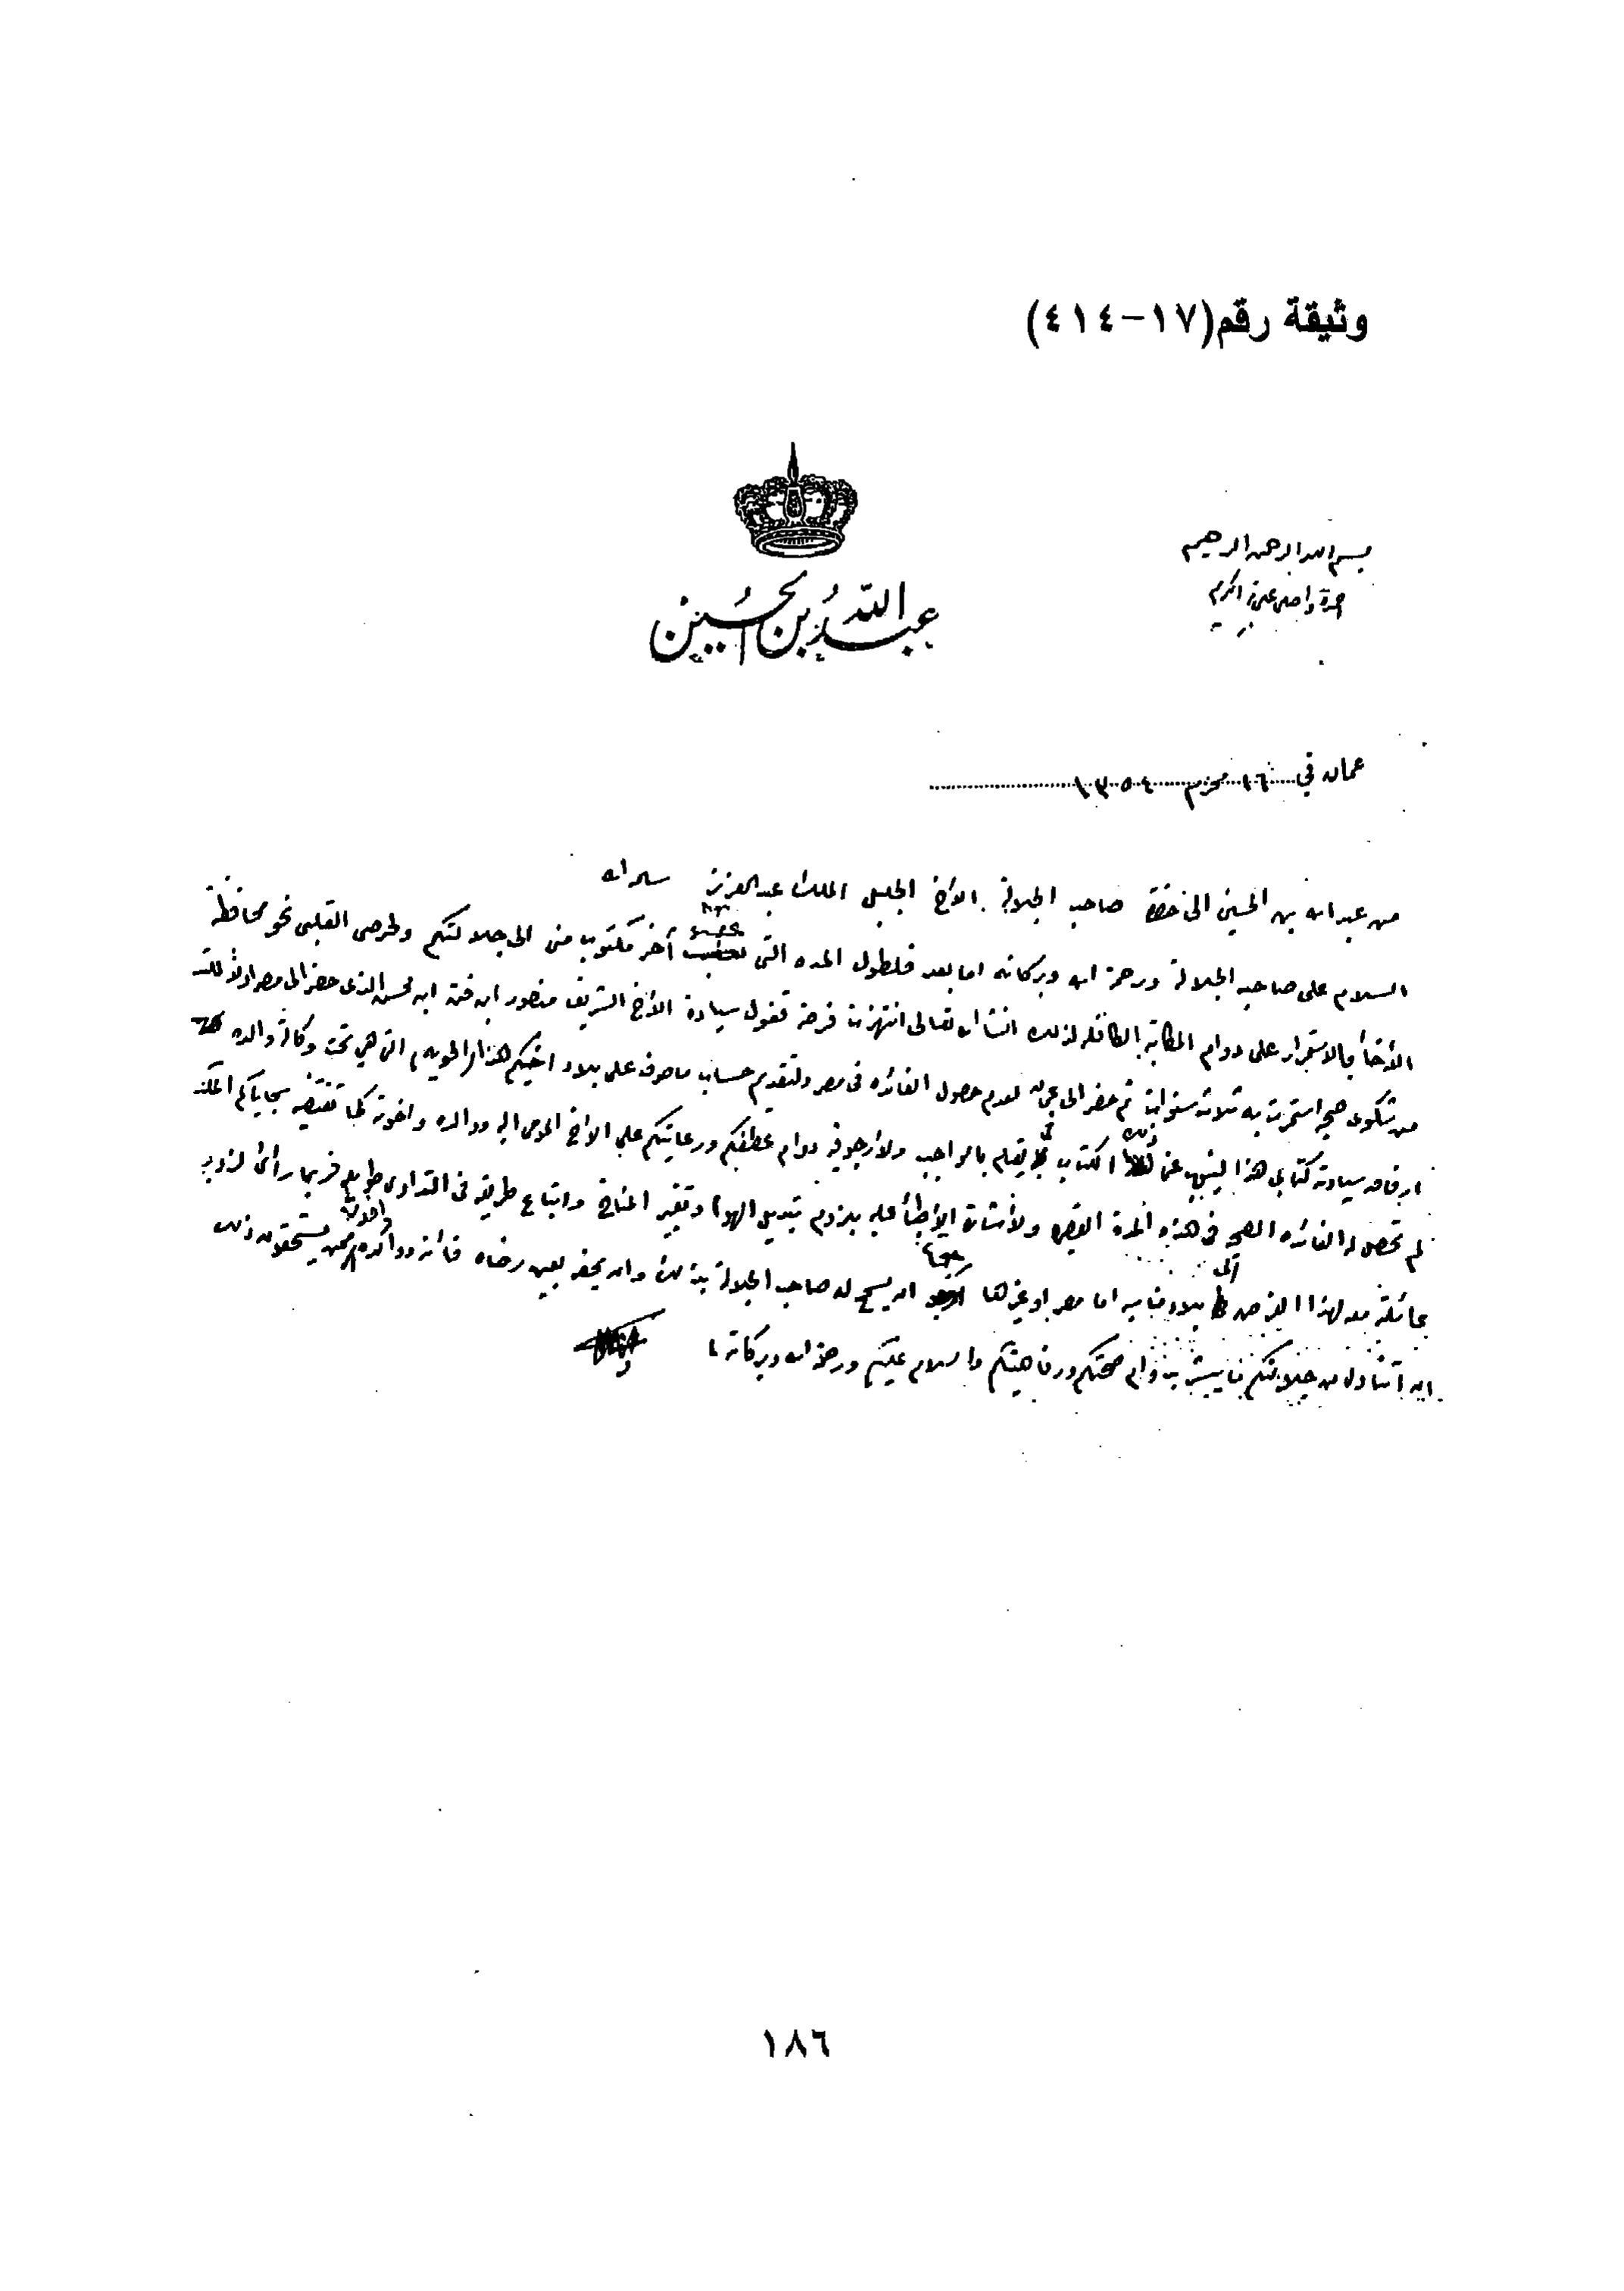 وثيقة رقم (١٧-٤١٤)
بسم الله الرحمن الرحيم
عبد الله بن الحسين
عمان في ١٦ محرم ١٣٥٤
من عبد الله بن الحسين الى حضرة صاحب الجلالة الأخ الجليل الملك عبد العزيز سلمه الله
السلام على صاحب الجلالة ورحمة الله وبركاته اما بعد فلطول المده التى آخر مكتوب منى الى جلالتكم ولحرصى القلبى نحو محافظة
الأخأ بالاستمرار على دوام المكاتبه الكافله لذلك انشأ الله تعالى انتهزت فرصة قفول سيادة الأخ الشريف منصور ابن فتن ابن محسن الذى حضر الى مصر اولا
من شكوى صحيه استمرت به ثلاث سنوات ثم حضر الى عمان لعدم حصول الفائده فى مصر ولتقديم حساب ما صرف على بلاد اخيكم هذا (الحويه) التى هي تحت وكالة والده
ارفاقه سيادته كتابي هذا لينبي عن الكتاب بالواجب ولأرجو فيه دوام عطفكم ورعايتكم على الاخ المومى اليه ووالده واخوته كما تقتضيه سجاياكم
لم تحصل له الفائده الصحيه فى هذه المدة القصيره ولأشارة الأطبأ عليه بلزوم تبديل الهوا وتغيير المناخ واتباع طريقه فى التداوى فربما رأى لزوم
عائلته معه لهذا الغرض الى بلاد مناسبه اما مصر او غيرها ان يسمح له صاحب الجلالة بذلك وان يلحظه بعين رضاه فأنه ووالده واخوته ممن يستحقون ذلك
ان اتناول من جلالتكم ما يبشر بدوام صحتكم ورفاهيتكم والسلام عليكم ورحمة الله وبركاته
١٨٦